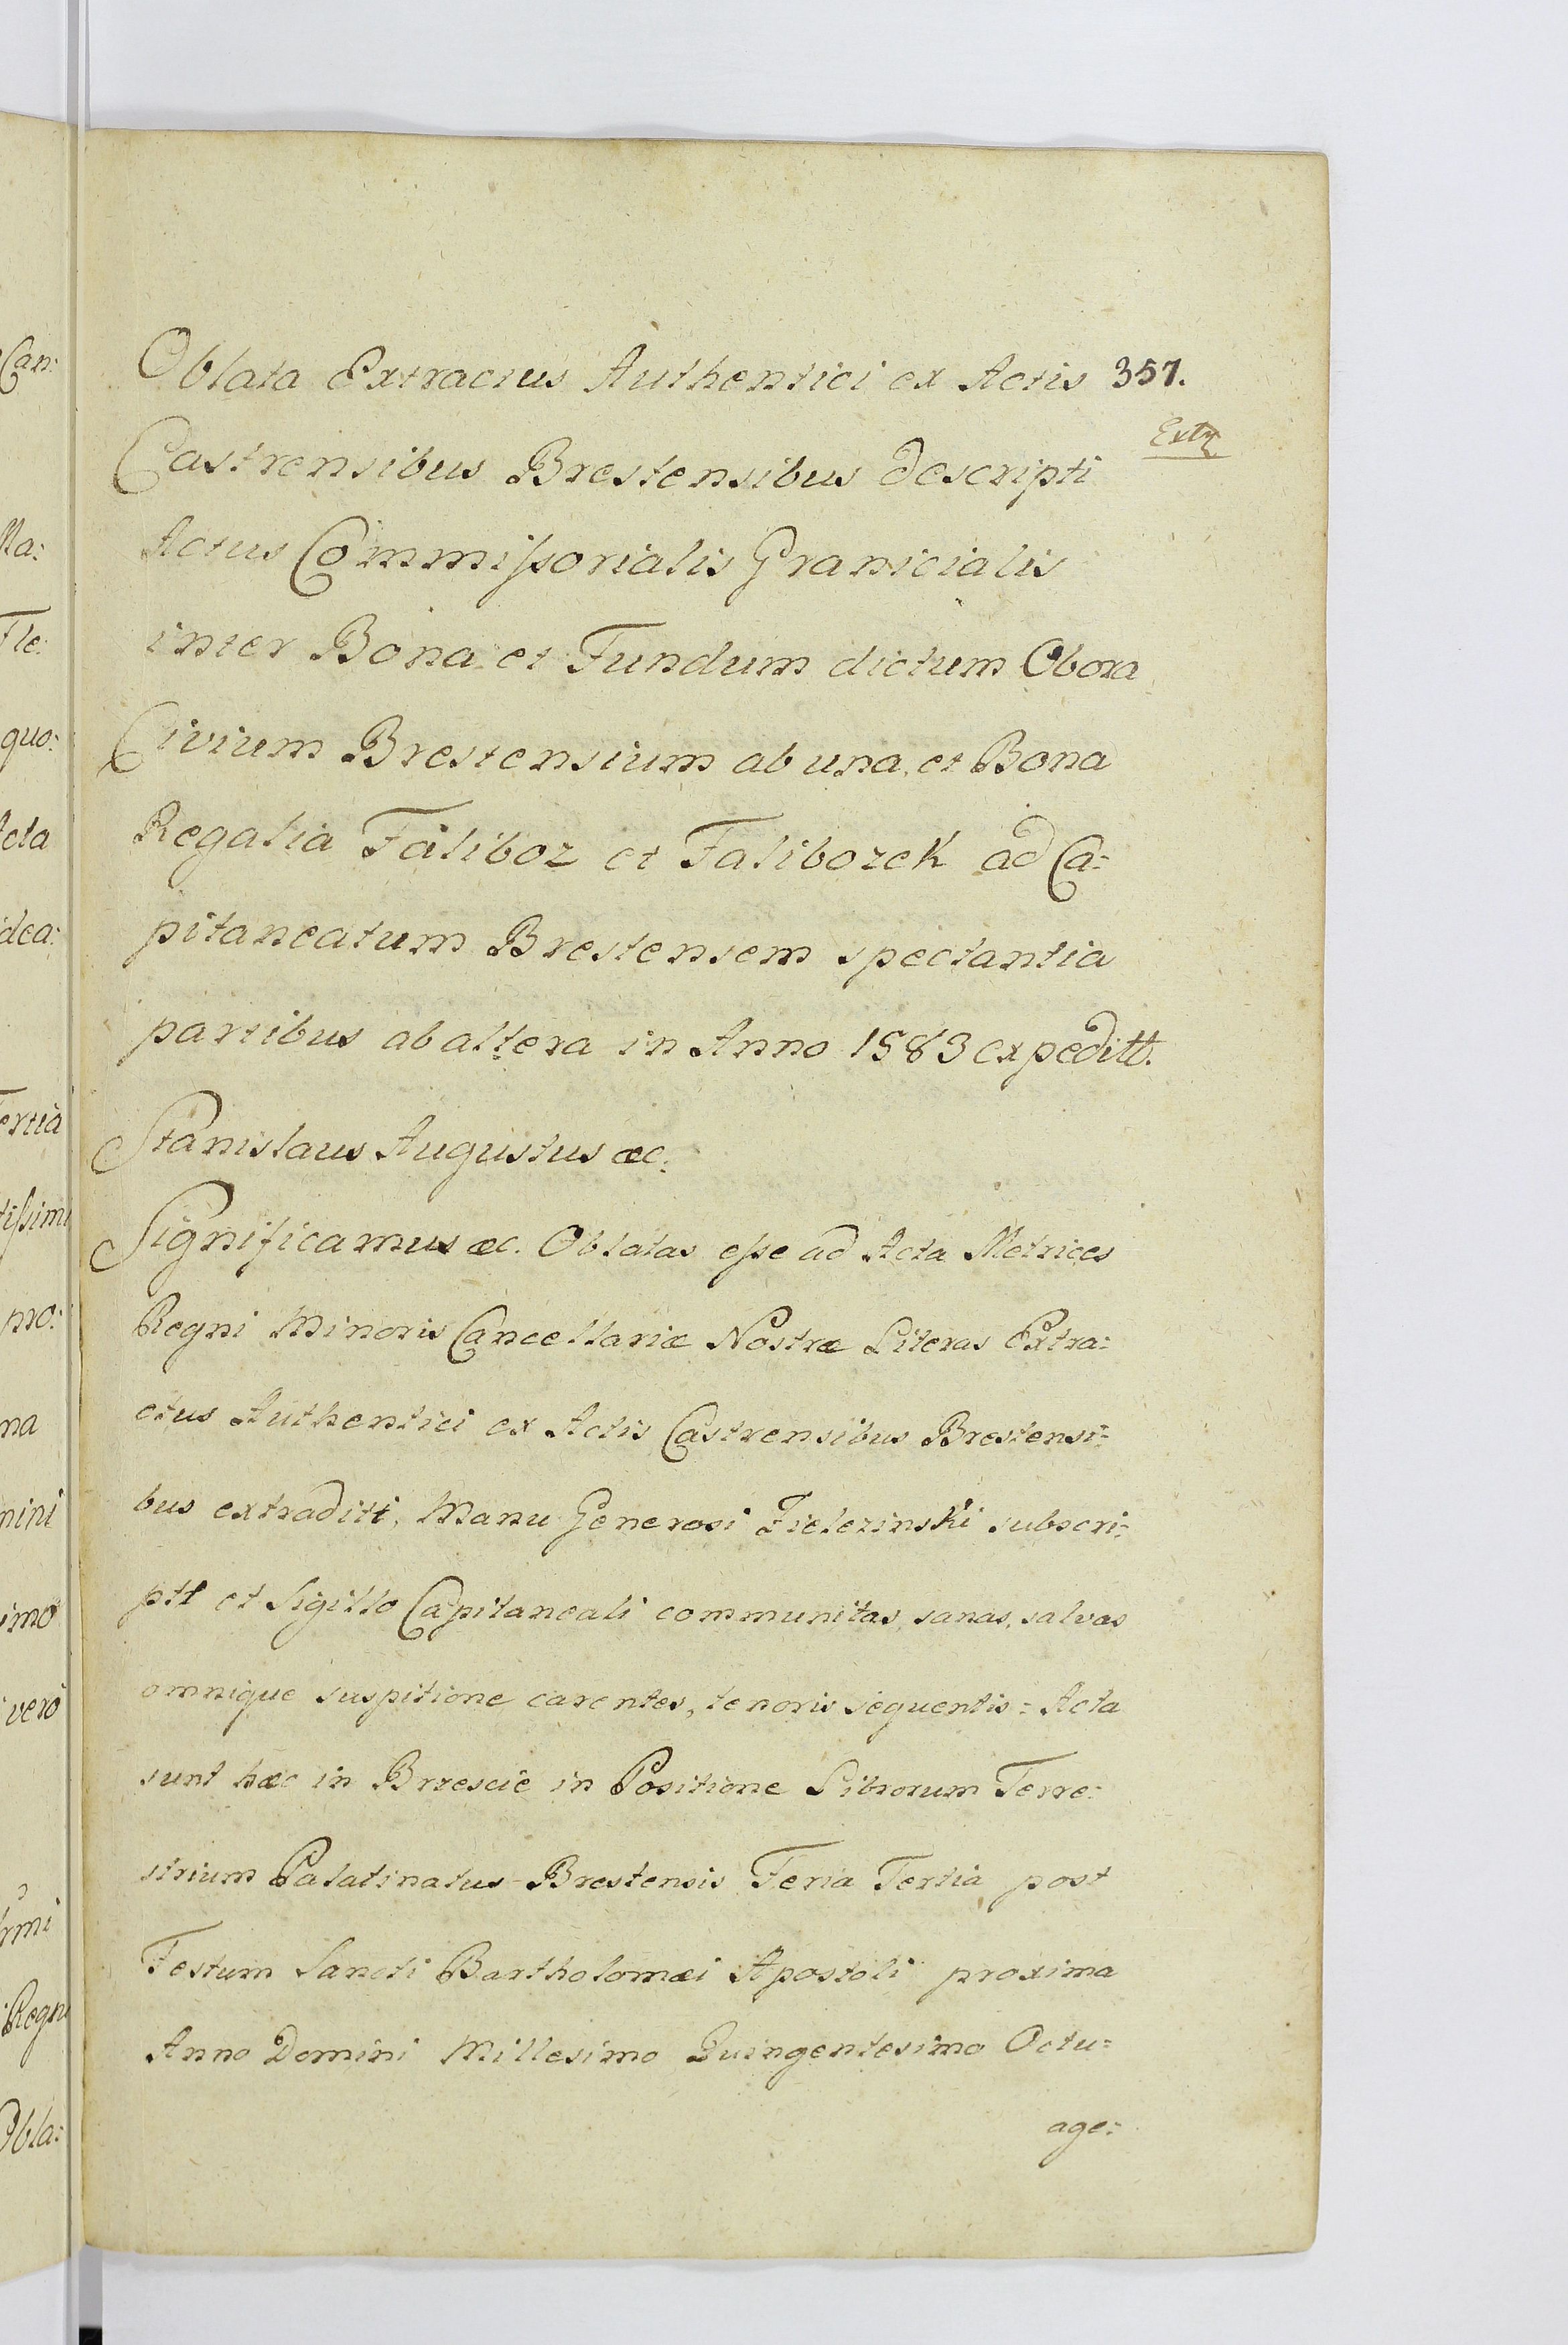 Oblata Extractus Authentici ex Actis 357.
Extr
Castrensibus Brestensibus descripti
Actus Commissorialis Granicialis
inter Bona et Fundum dictum Obora
Civium Brestensium ab una, et Bona
Regalia Faliboz et Falibozek ad Ca:
pitaneatum Brestensem spectantia
partibus ab altera in Anno 1583 expeditt.
Stanislaus Augustus &c.
Significamus &c. Oblatas esse ad Acta Metrices
Regni Minoris Cancellariæ Nostræ Literas Extra:
ctus Authentici ex Actis Castrensibus Brestensi:
bus extraditi, Manu Generosi Zielezinski subscri:
ptt et Sigillo Capitaneali communitas, sanas, salvas
omnique suspitione carentes, tenoris sequentis: Acta
sunt hæc in Brzescie in Positione Librorum Terre:
strium Palatinatus Brestensis Feria Tertia post
Festum Sancti Bartholomæi Apostoli proxima
Anno Domini Millesimo Quingentesimo Octu:
age:
Can:
Ma:
Fle:
quo:
Acta
idea:
Tertia
tissimi
pro:
na
mini
imo
vero
rmi
Regni
Obla: